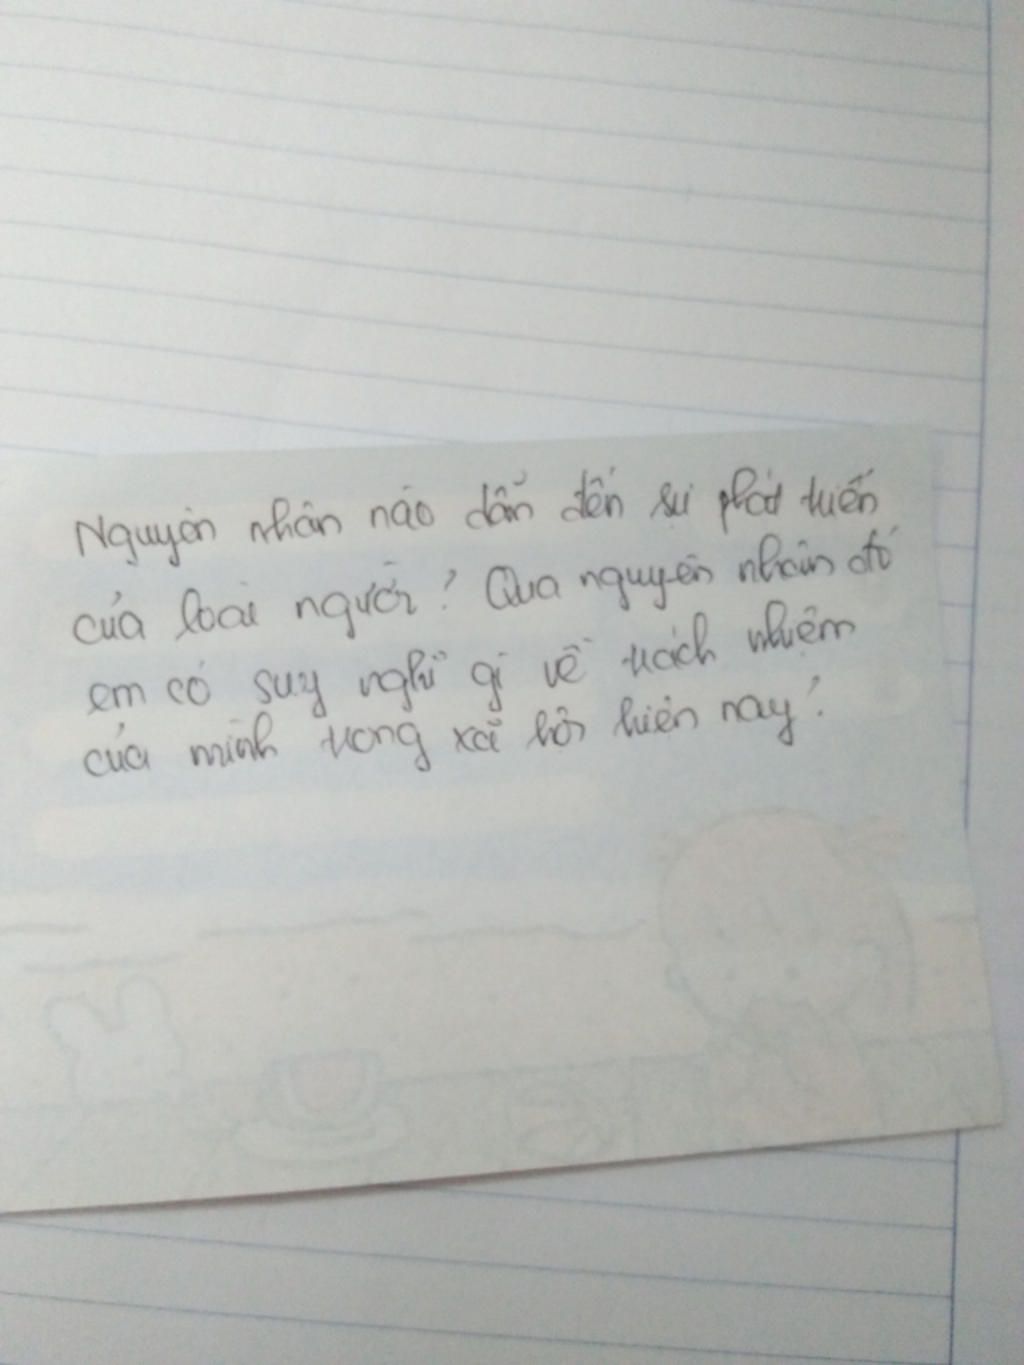 Nguyên nhân nào dẫn đến sự phát triển
của loài người? Qua nguyên nhân đó
em có suy nghĩ gì về trách nhiệm
của mình trong xã hội hiện nay?